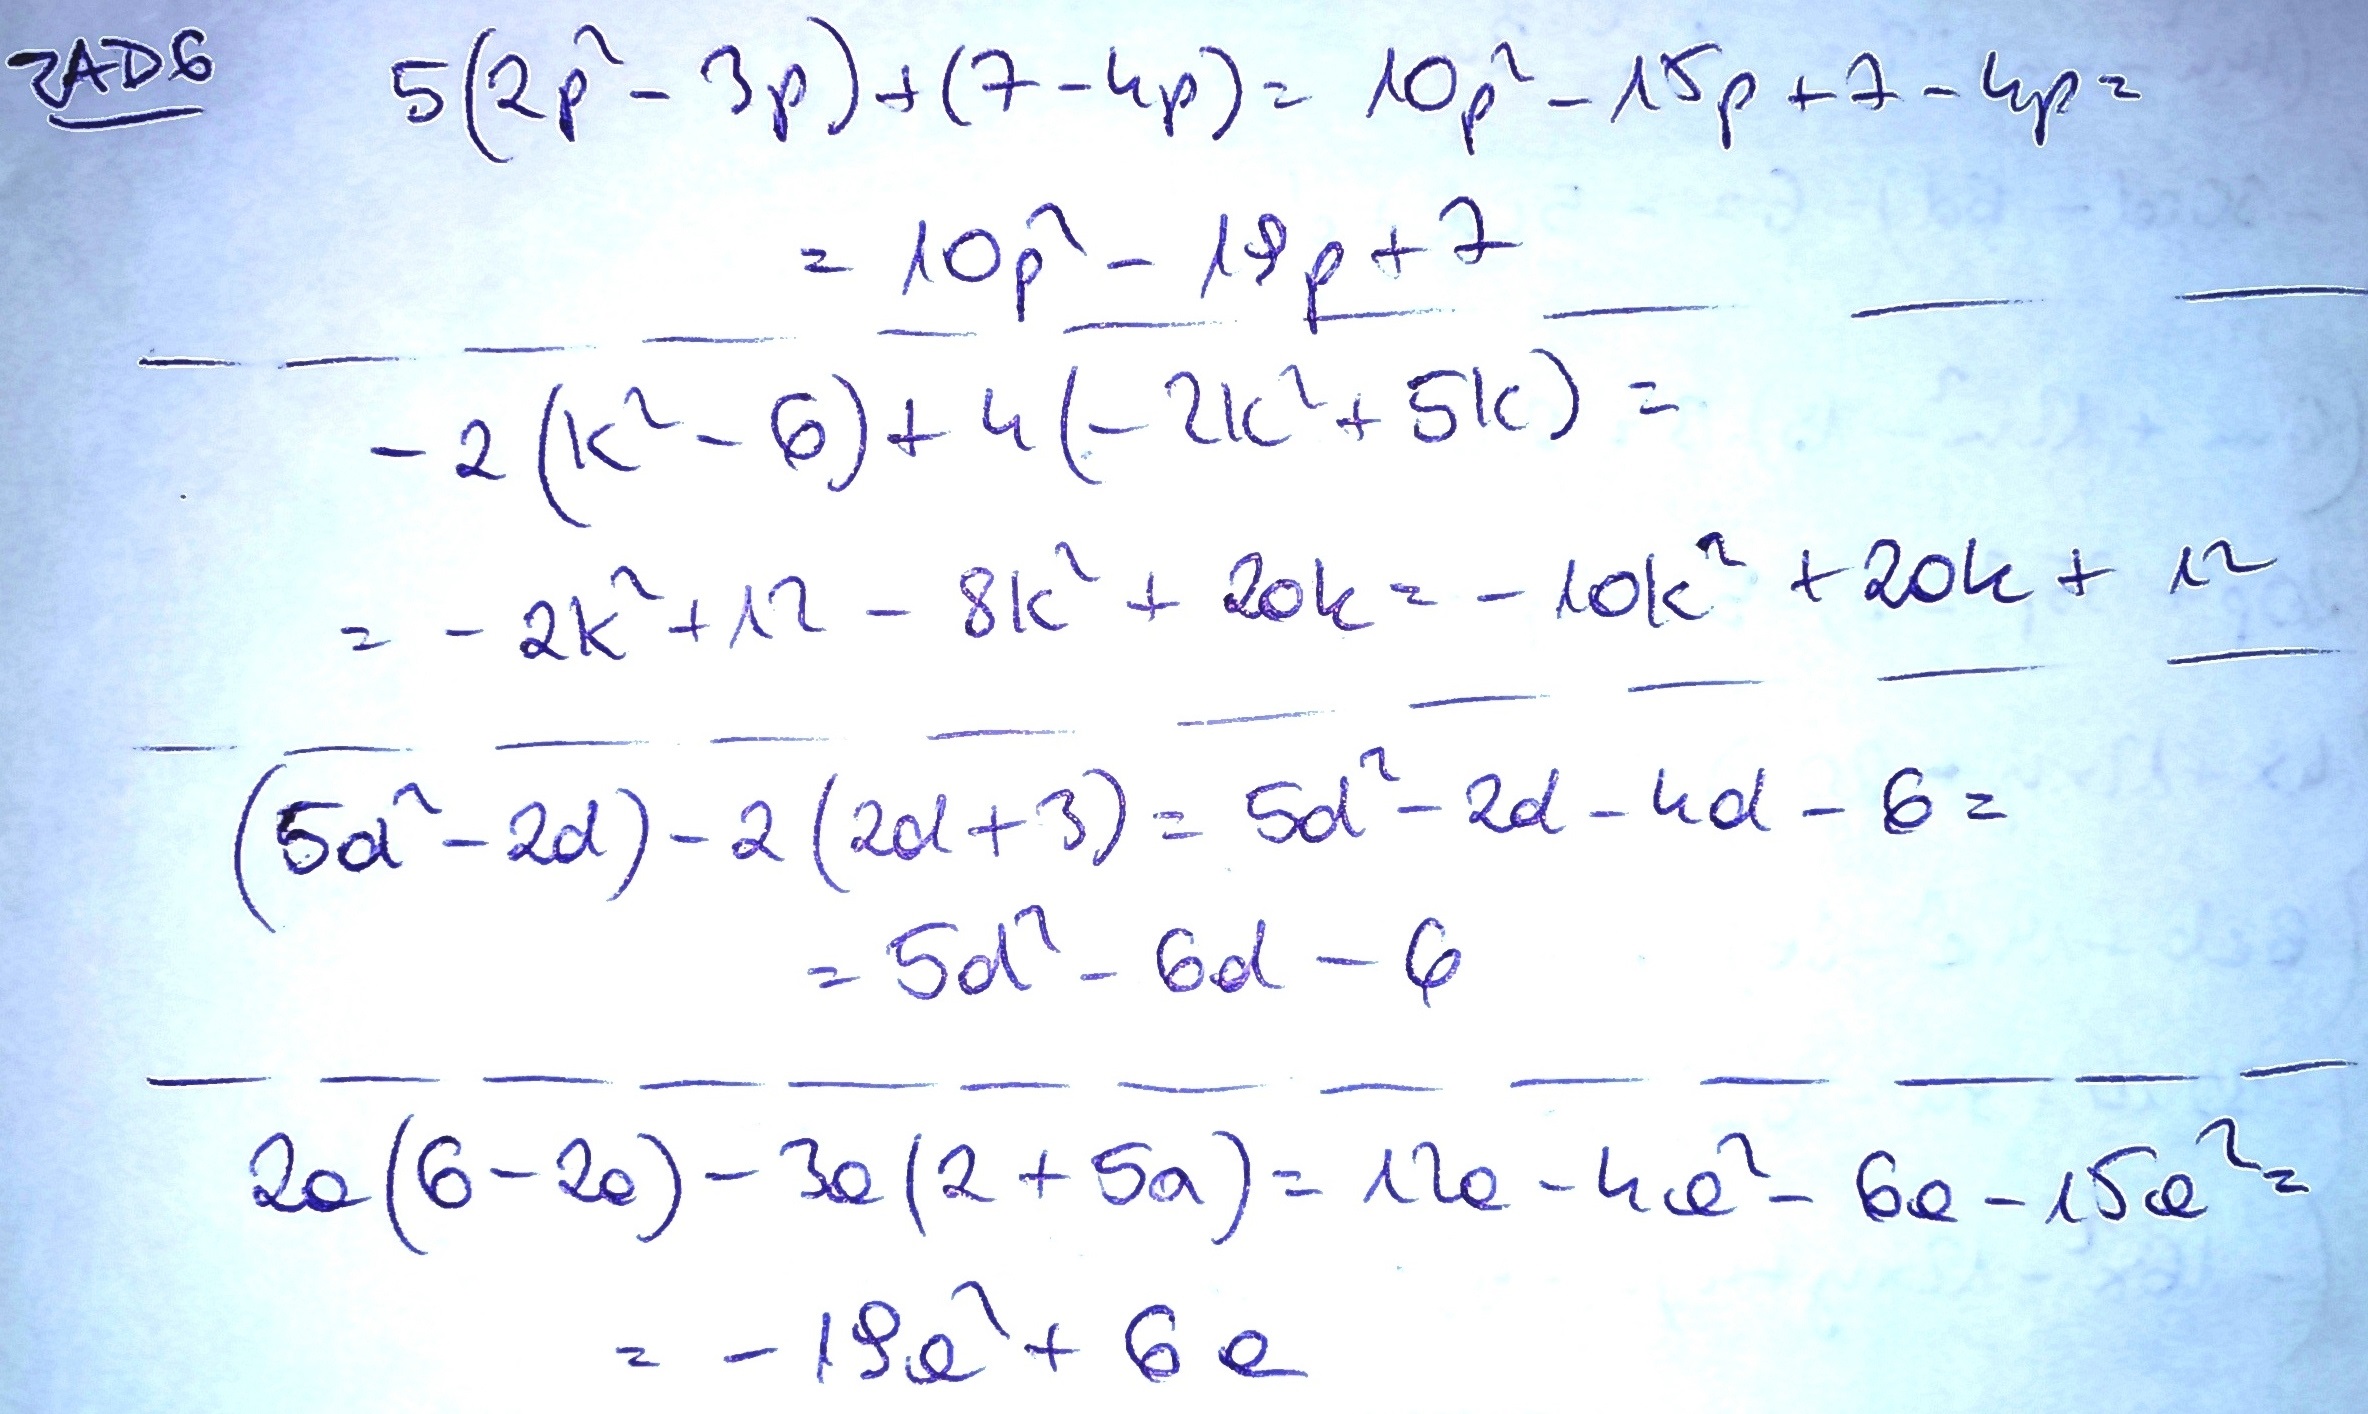 ZAD6 5(2p²-3p)+(7-4p)= 10p²-15p+7-4p=
= 10p²-19p+7
-2(k²-6)+4(-2k²+5k)=
= -2k²+12-8k²+20k= -10k²+20k+12
(5d²-2d)-2(2d+3)= 5d²-2d-4d-6=
= 5d²-6d-6
2a(6-2a)-3a(2+5a)= 12a-4a²-6a-15a²=
= -19a²+6a